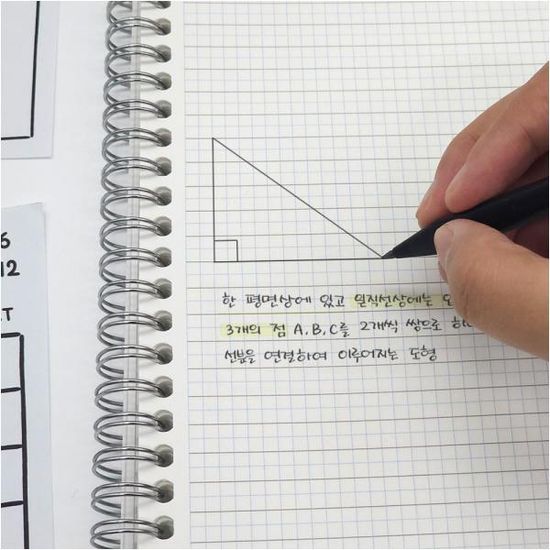 6
12
T
한 평면상에 있고 일직선상에는
3개의 점 A, B, C를 2개씩 쌍으로
선분을 연결하여 이루어지는 도형